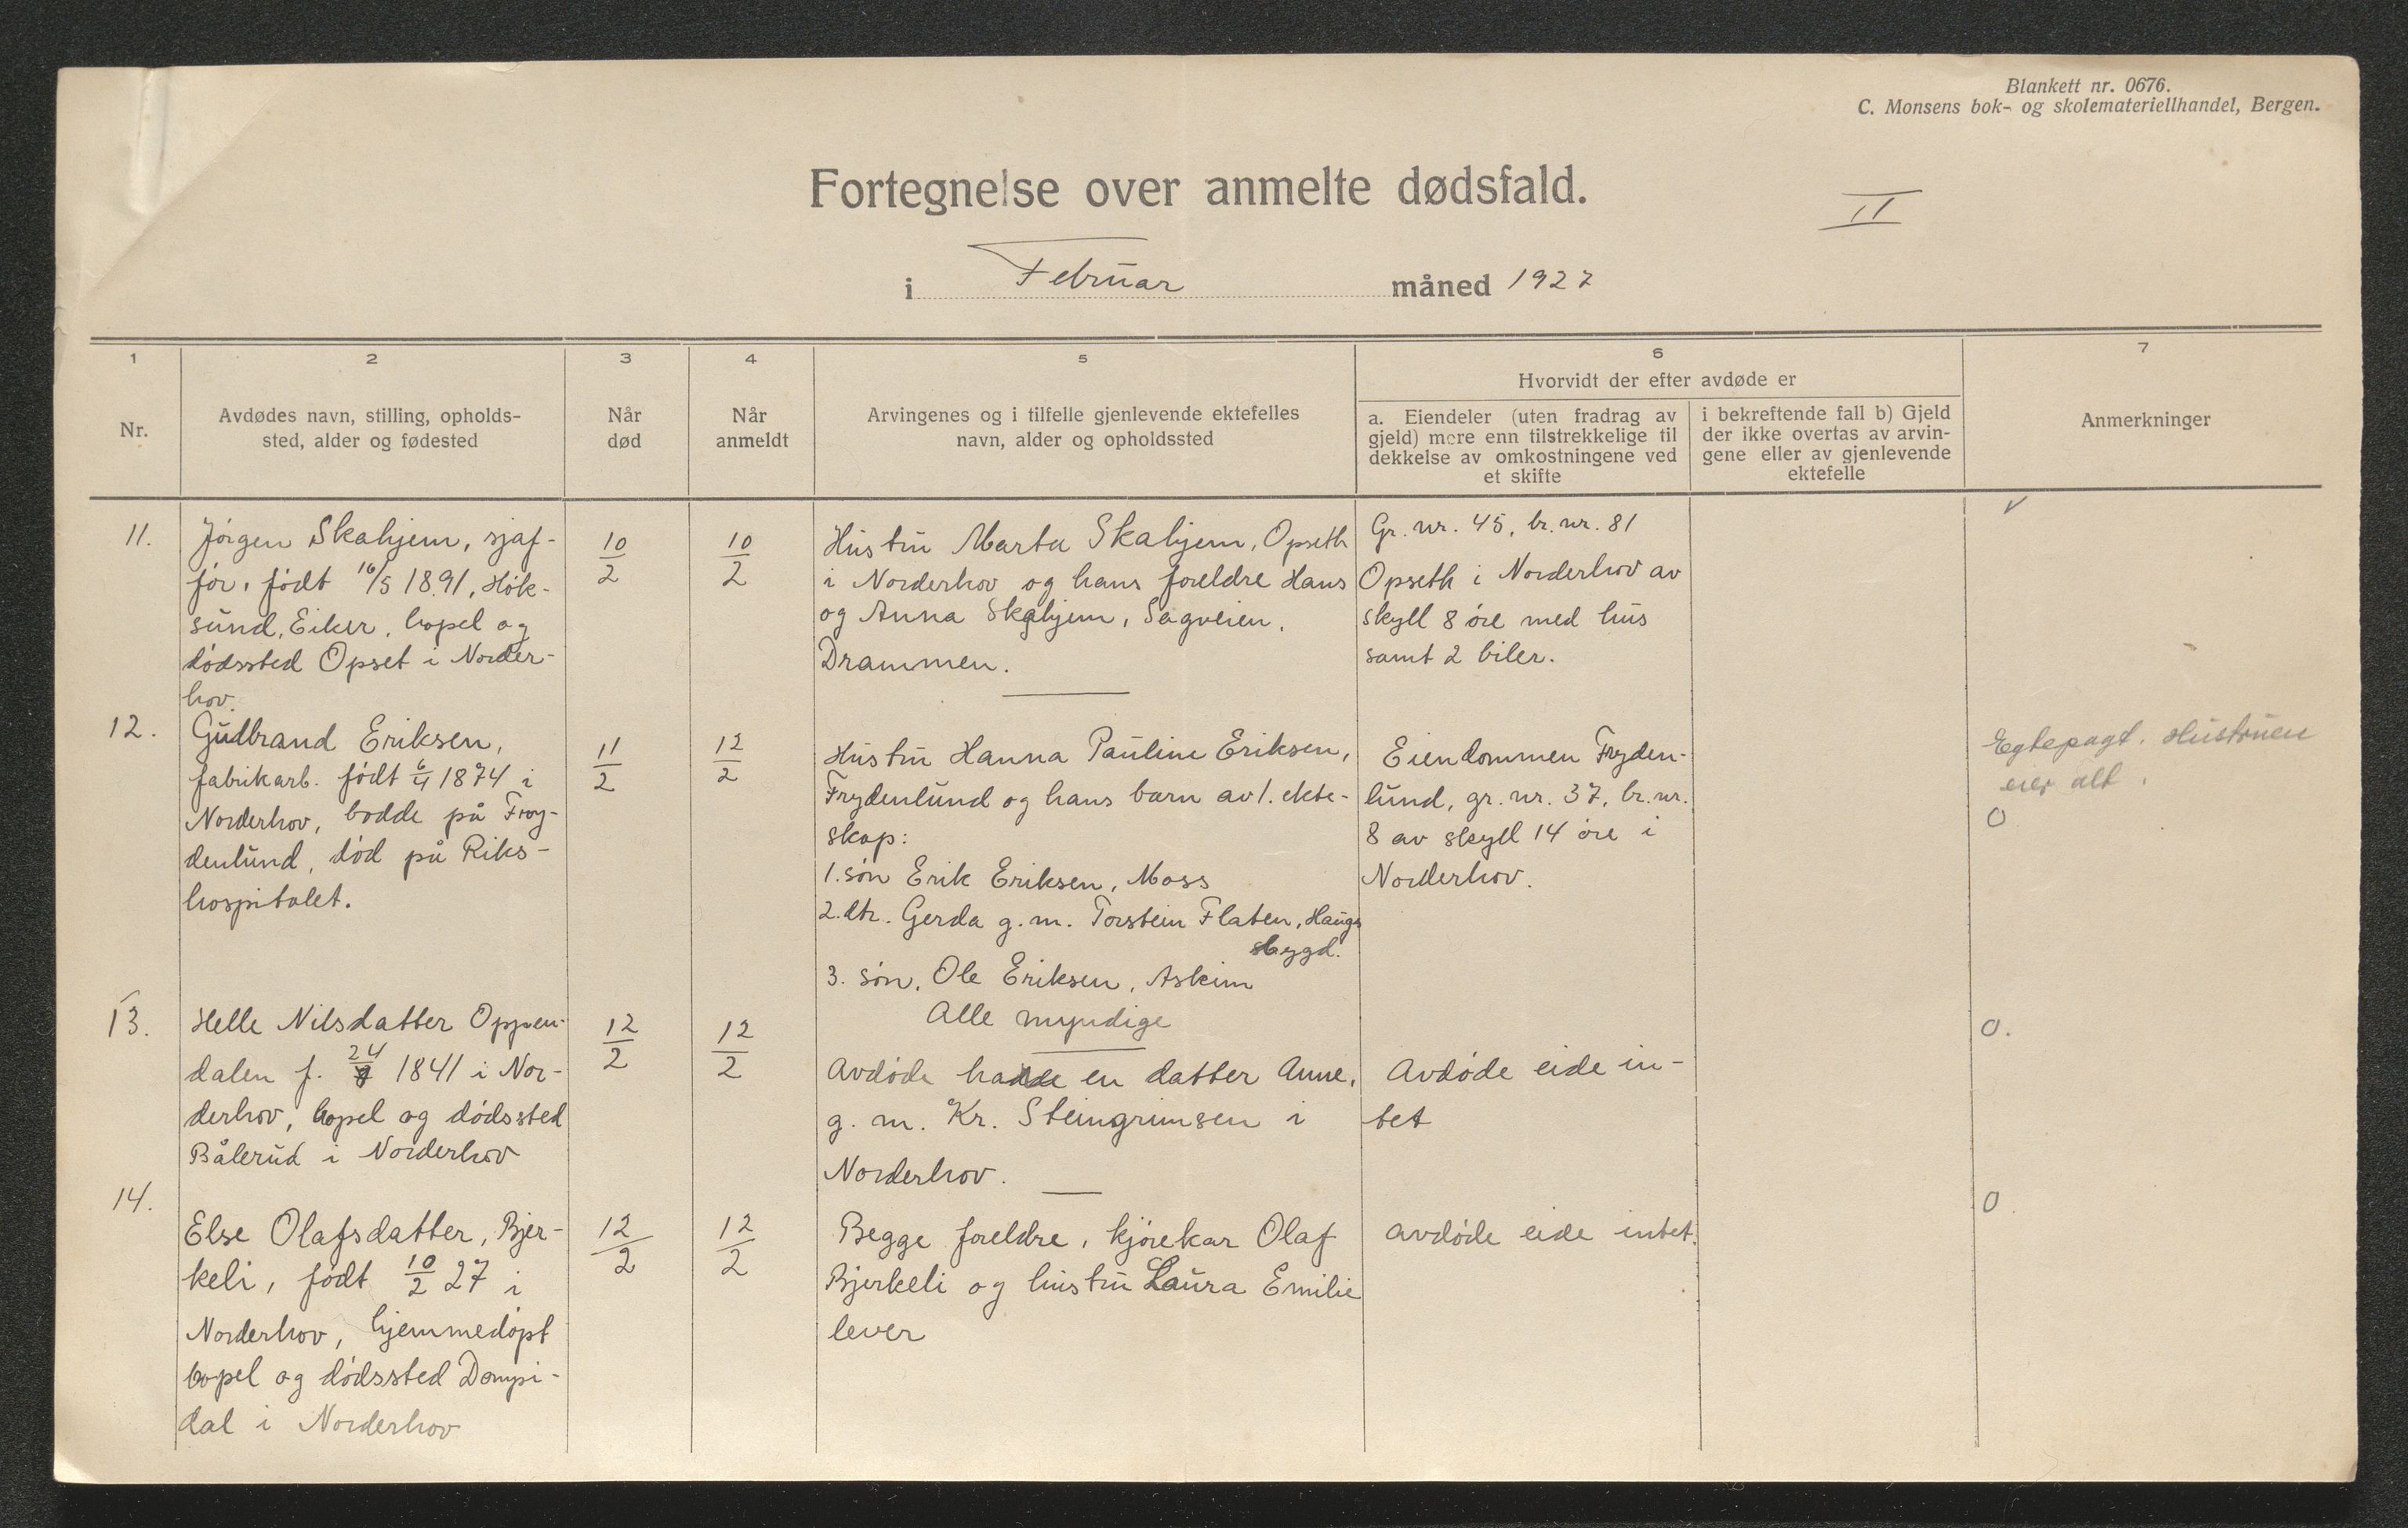 Blankett nr. 0676.
C. Monsens bok- og skolemateriellhandel, Bergen.
Fortegnelse over anmelte dødsfald.
II
i Februar måned 1927
1
2
3
4
5
6
7
Nr.
Avdødes navn, stilling, opholds-
sted, alder og fødested
Når
død
Når
anmeldt
Arvingenes og i tilfelle gjenlevende ektefelles
navn, alder og opholdssted
Hvorvidt der efter avdøde er
a. Eiendeler (uten fradrag av
gjeld) mere enn tilstrekkelige til
dekkelse av omkostningene ved
et skifte
i bekreftende fall b) Gjeld
der ikke overtas av arvin-
gene eller av gjenlevende
ektefelle
Anmerkninger
11.
Jørgen Skahjem, sjaf-
før, født 16/5 1891, Høk-
sund, Eiker, bopel og
dødssted Opset i Norder-
hov.
10/2
10/2
Hustru Marta Skahjem, Opseth
i Norderhov og hans foreldre Hans
og Anna Skahjem, Sagveien,
Drammen.
Gr. nr. 45, br. nr. 81
Opseth i Norderhov av
skyll 8 øre med hus
samt 2 biler.
✓
12.
Gudbrand Eriksen,
fabrikarb. født 6/4 1874 i
Norderhov, bodde på Fry-
denlund, død på Riks-
hospitalet.
11/2
12/2
Hustru Hanna Pauline Eriksen,
Frydenlund og hans barn av 1. ekte-
skap:
1. søn Erik Eriksen, Moss
2. dtr. Gerda g.m. Torstein Flaten, Haugs
bygd.
3. søn, Ole Eriksen, Askim
Alle myndige
Eiendommen Fryden-
lund, gr. nr. 37, br. nr.
8 av skyll 14 øre i
Norderhov.
Egtepagt. Hustruen
eier alt.
0
13.
Helle Nilsdatter Oppen-
dalen f. 24/9 1841 i Nor-
derhov, bopel og dødssted
Bålerud i Norderhov
12/2
12/2
Avdøde hadde en datter Anne,
g. m. Kr. Steingrimsen i
Norderhov.
Avdøde eide in-
tet
0.
14.
Else Olafsdatter, Bjer-
keli, født 10/2 27 i
Norderhov, hjemmedøpt
bopel og dødssted Dompi-
dal i Norderhov
12/2
12/2
Begge foreldre, kjørekar Olaf
Bjerkeli og hustru Laura Emilie
lever
Avdøde eide intet.
0.